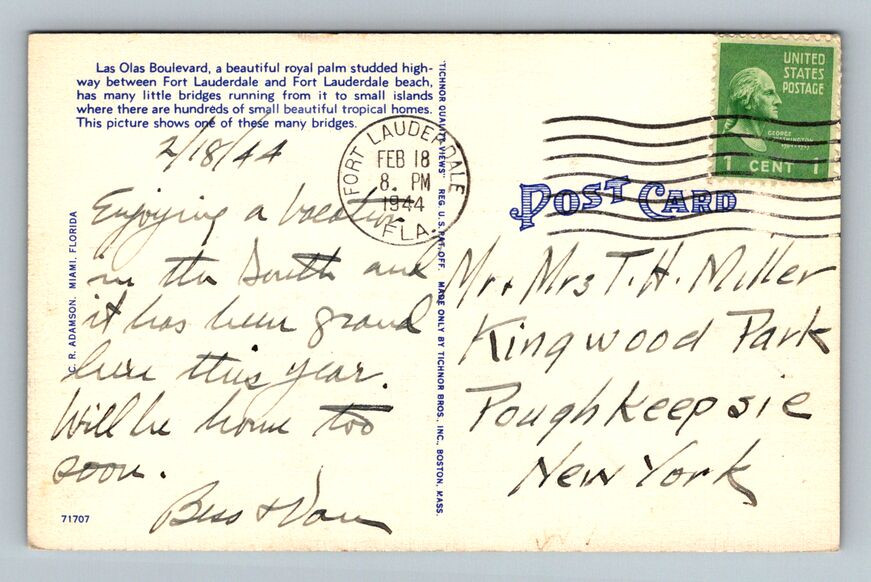 Las Olas Boulevard, a beautiful royal palm studded high-
way between Fort Lauderdale and Fort Lauderdale beach,
has many little bridges running from it to small islands
where there are hundreds of small beautiful tropical homes.
This picture shows one of these many bridges.
2/18/44
Enjoying a vacation
in the South and
it has been grand
here this year.
Will be home too
soon.
Bess +
71707
C. R. ADAMSON, MIAMI, FLORIDA
"TICHNOR QUALITY VIEWS" REG. U. S. PAT. OFF. MADE ONLY BY TICHNOR BROS., INC., BOSTON, MASS.
FORT LAUDERDALE
FEB 18
8. PM
1944
FLA.
UNITED
STATES
POSTAGE
GEORGE
WASHINGTON
1 CENT 1
POST CARD
Mr + Mrs T. H. Miller
Kingwood Park
Poughkeepsie
New York